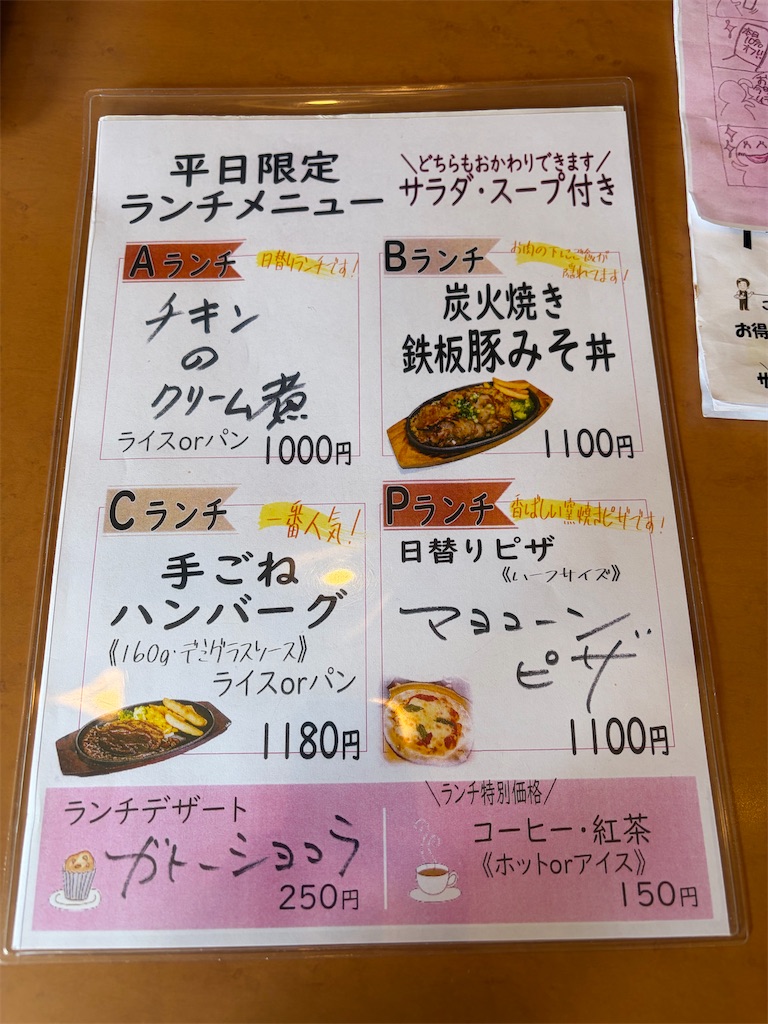 平日限定
ランチメニュー
\どちらもおかわりできます/
サラダ・スープ付き
Aランチ
日替りランチです!
チキン
の
クリーム煮
ライスorパン
1000円
Bランチ
お肉の下にご飯が
隠れてます!
炭火焼き
鉄板豚みそ丼
1100円
Cランチ
一番人気!
手ごね
ハンバーグ
《160g・デミグラスソース》
ライスorパン
1180円
Pランチ
香ばしい窯焼きピザです!
日替りピザ
《ハーフサイズ》
マヨコーン
ピザ
1100円
ランチデザート
ガトーショコラ
250円
\ランチ特別価格/
コーヒー・紅茶
《ホットorアイス》
150円
本日
10%
オフ!!
お得